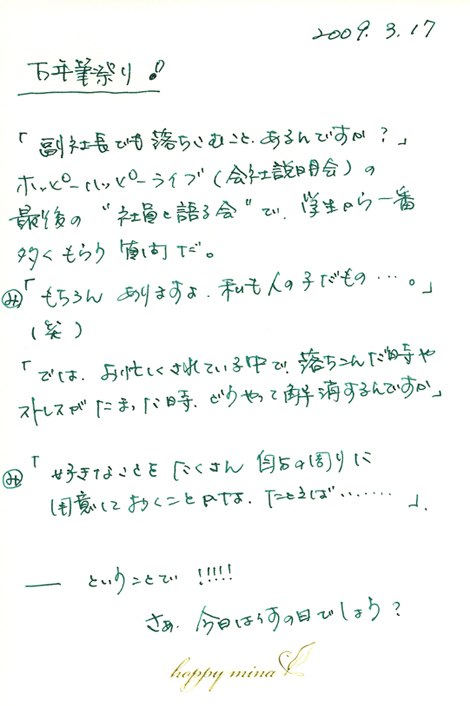 2009. 3. 17
万年筆祭り!
「副社長でも落ちこむこと、あるんですか?」
ホッピーハッピーライブ(会社説明会)の
最後の“社員と語る会”で、学生から一番
多くもらう質問だ。
み「もちろん ありますよ、私も人の子だもの…。」
(笑)
「では、お忙しくされている中で、落ちこんだ時や
ストレスがたまった時、どうやって解消するんですか」
み「好きなことを たくさん 自分の周りに
用意しておくことかな、たとえば……」.
― ということで !!!!!
さぁ、今日は何の日でしょう?
happy mina